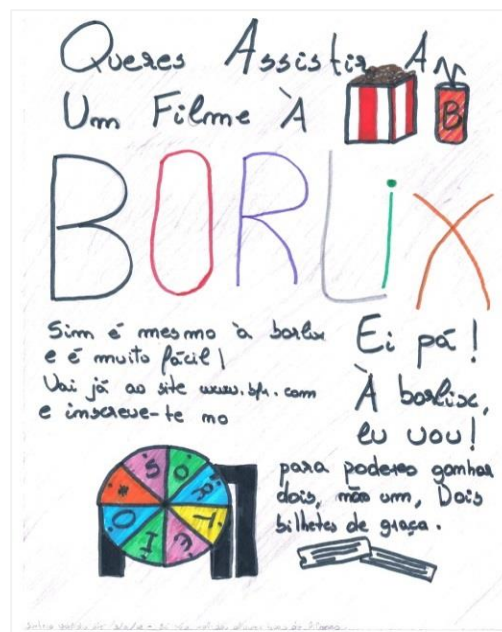 Queres Assistir A
Um Filme À
B
BORLiX
Sim é mesmo à borlix
e é muito fácil!
Vai já ao site www.bfv.com
e inscreve-te no
Ei pá!
À borlix,
eu vou!
para poderes ganhar
dois, não um, Dois
bilhetes de graça.